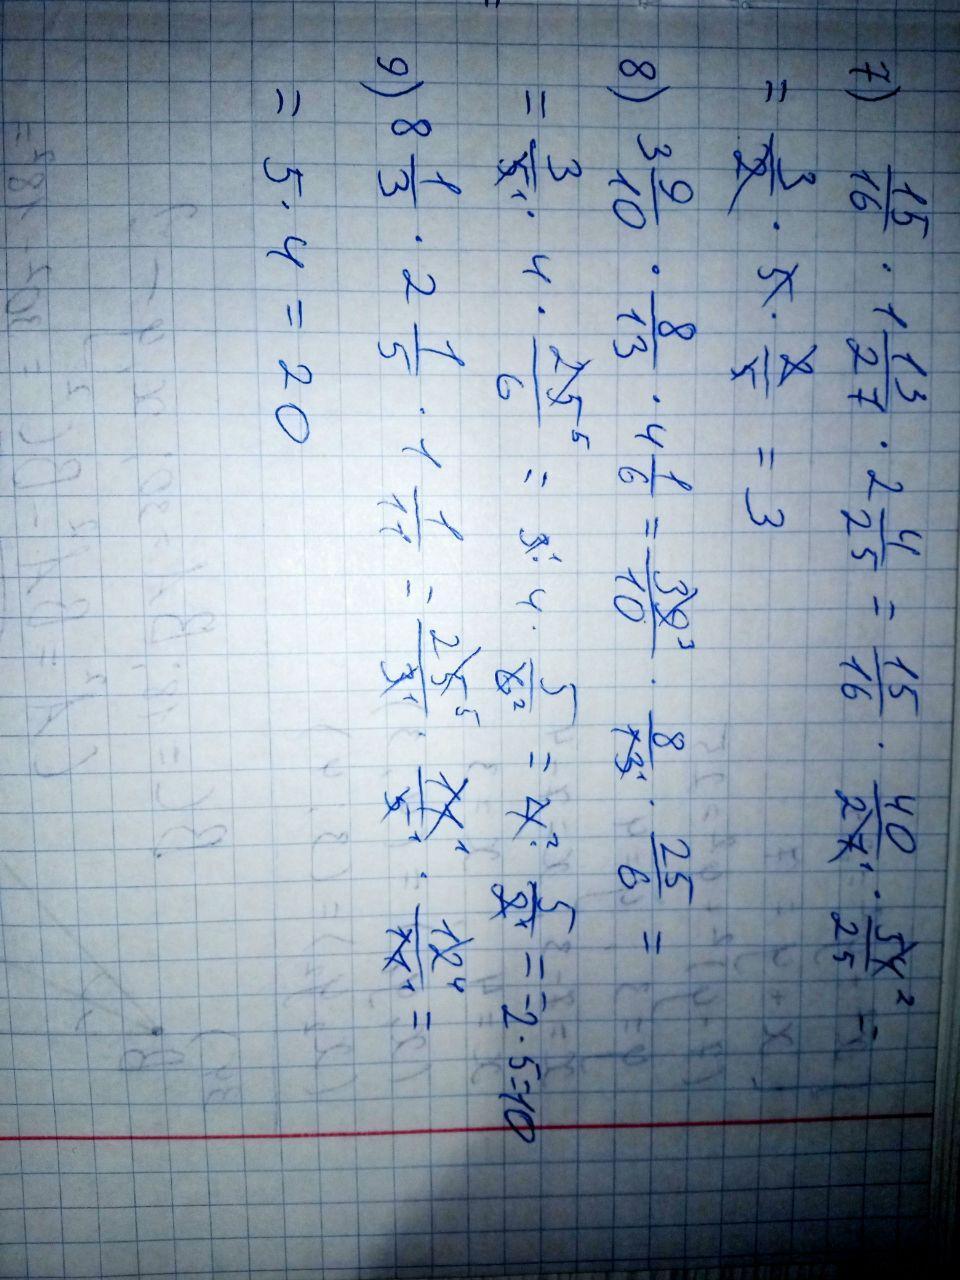 7) 15/16 · 1 13/27 · 2 4/25 = 15/16 · 40/27¹ · 54²/25 =
= 3/2 · 5 · 2/5 = 3
8) 3 9/10 · 8/13 · 4 1/6 = 39³/10 · 8/13¹ · 25/6 =
= 3/5¹ · 4 · 25⁵/6 = 3¹ · 4 · 5/6² = 4² · 5/2¹ = 2 · 5 = 10
9) 8 1/3 · 2 1/5 · 1 1/11 = 25⁵/3¹ · 11¹/5¹ · 12⁴/11¹ =
= 5 · 4 = 20